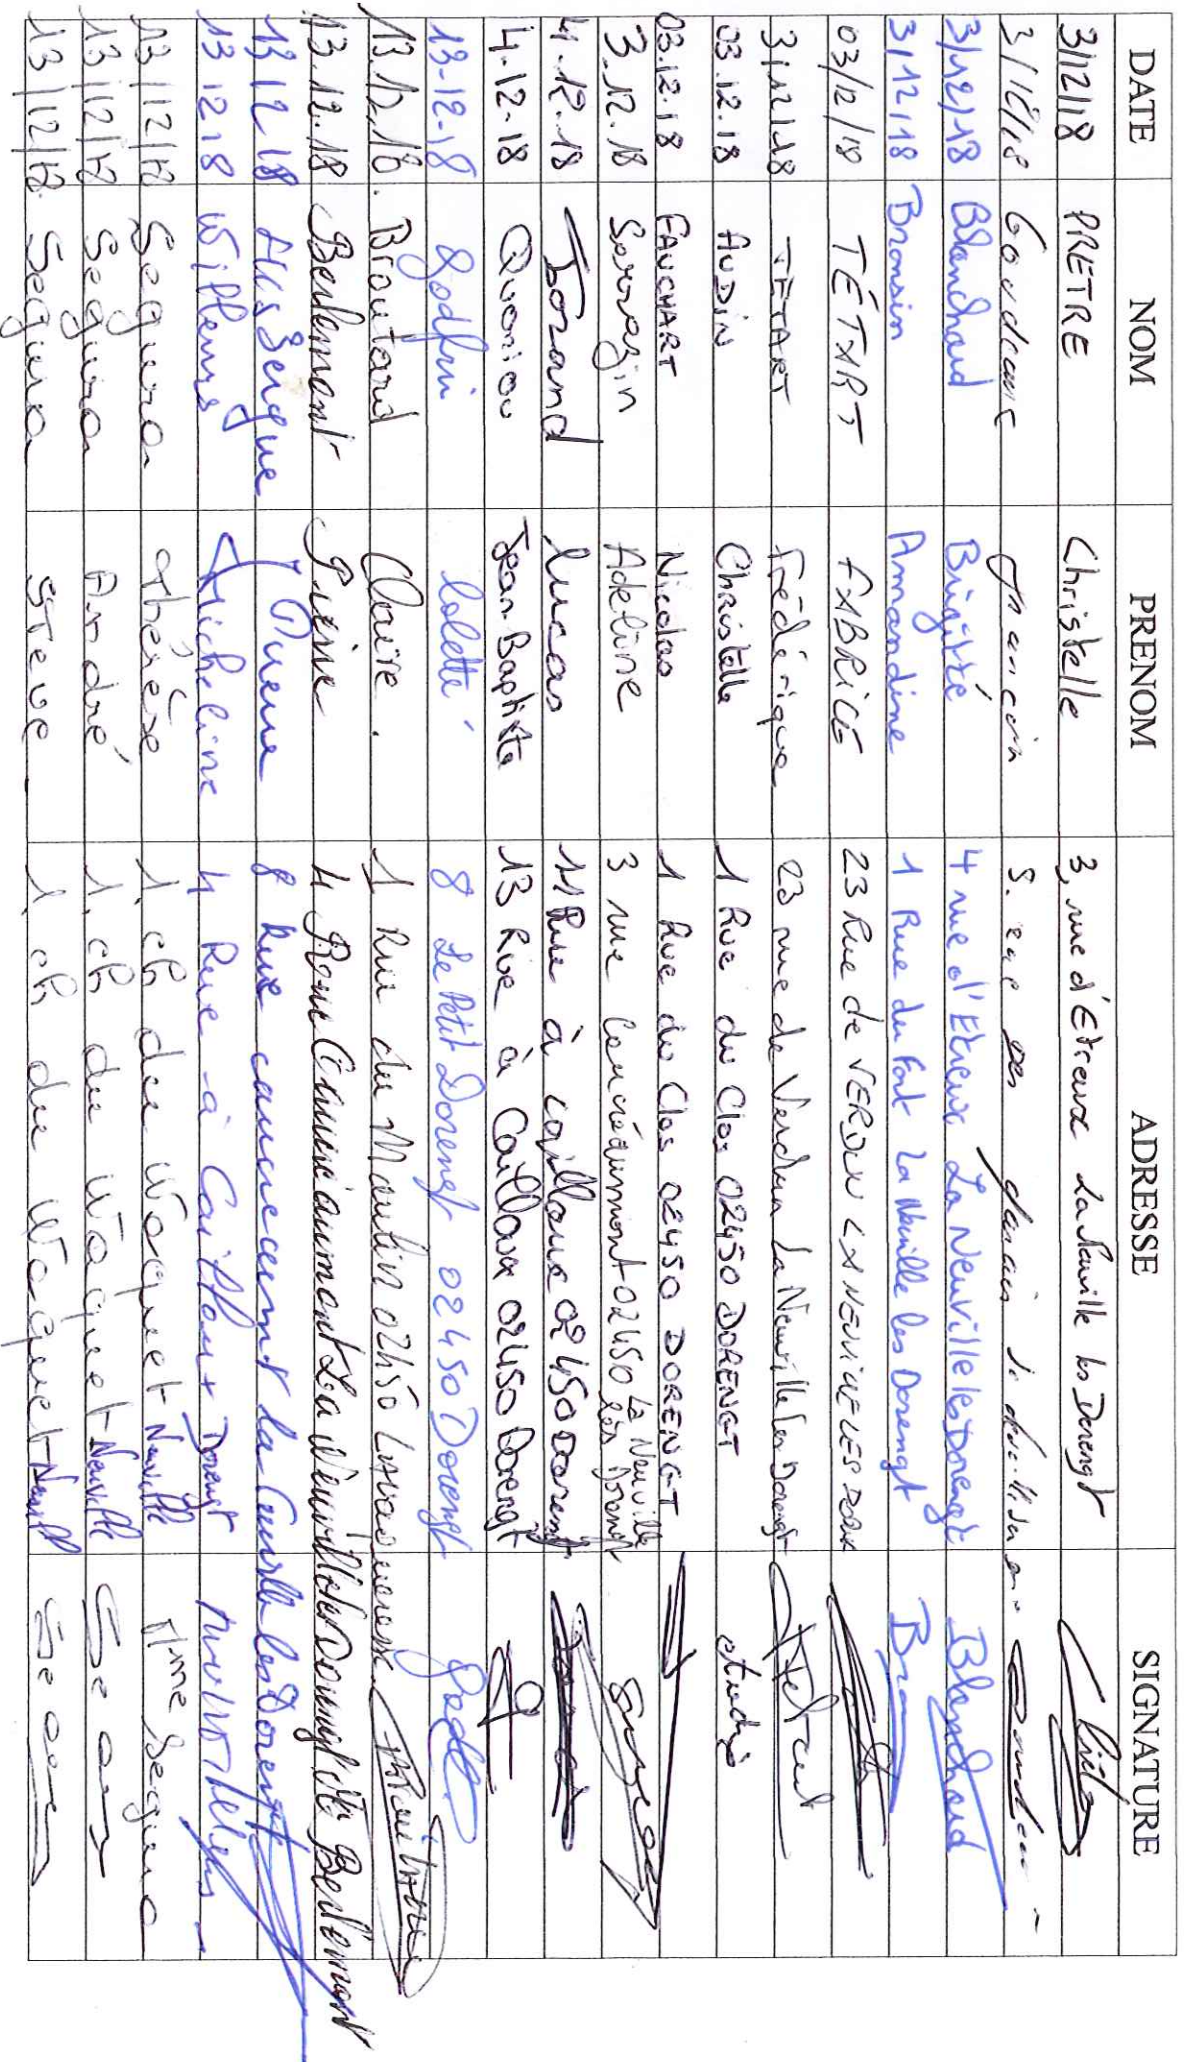 DATE NOM PRENOM ADRESSE SIGNATURE
3/12/18 PRETRE Christelle 3, rue d'Etreux La Neuville les Dorengt
3/12/18
3/12/18 Blanchard Brigitte 4 rue d'Etreux La Neuville les Dorengt Blanchard
3/12/18 Bronsin Amandine 1 Rue du Fort La Neuville les Dorengt
03/12/18 TÉTART FABRICE 23 Rue de VERDUN LA NEUVILLE LES DORENGT
3/12/18 TETART Frédérique 23 rue de Verdun La Neuville les Dorengt
03.12.18 AUDIN Christelle 1 Rue du Clos 02450 DORENGT
03.12.18 FAUCHART Nicolas 1 Rue du Clos 02450 DORENGT
3.12.18 Sarrazin Adeline 3 rue 02450 La Neuville lès Dorengt
4.12.18 Lucas 11 Rue à Cailloux 02450 Dorengt
4.12.18 Quoniou Jean-Baptiste 13 Rue à Cailloux 02450 Dorengt
13-12-18 Godfrin Colette 8 Le Petit Dorengt 02450 Dorengt
13.12.18. Broutard Claire. 1 Rue du Moulin 02450
13.12.18 Berlemont 4 La Neuville les Dorengt Berlemont
13 12 18 8 Rue la Neuville les Dorengt
13 12 18 Willems Micheline 4 Rue à Cailloux Dorengt
13/12/18 Seguera thérèse 1, ch du Woquet Neuville Mme Seguera
13/12/18 Seguera André 1, ch du Woquet Neuville
13/12/18 Seguera STeve 1, ch du Woquet Neuvill